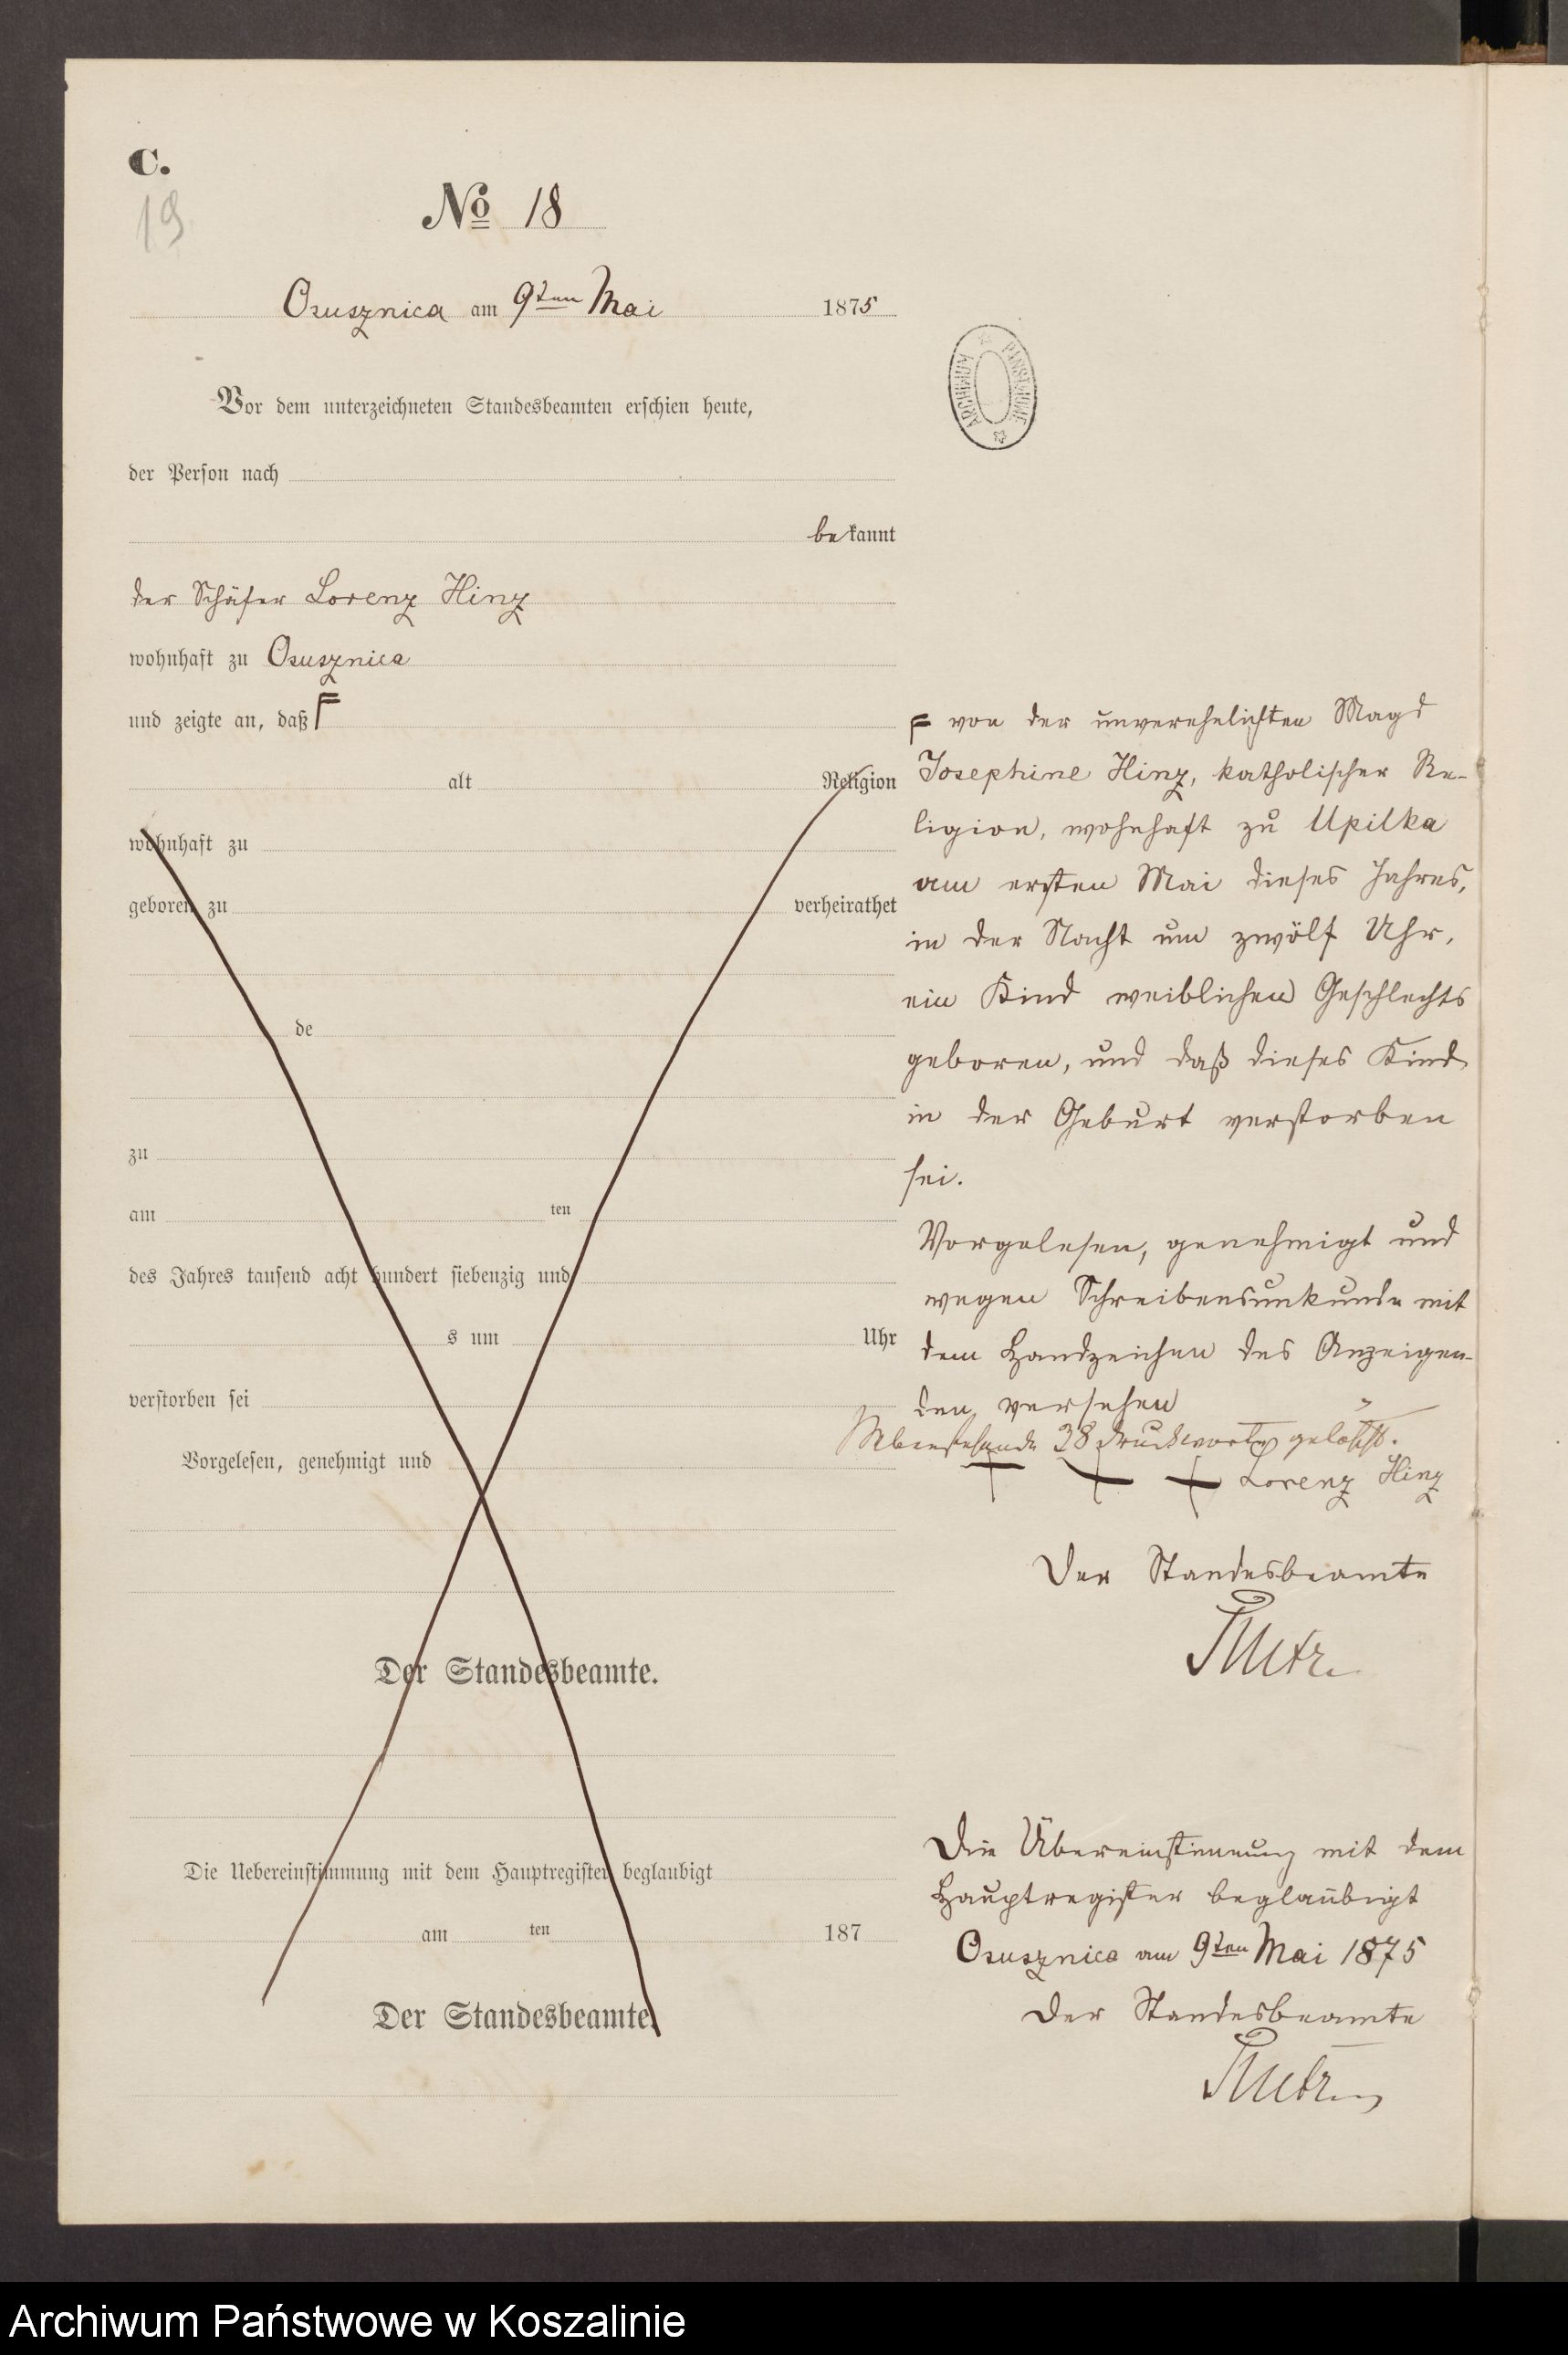 C.
19
No 18
Osusznica am 9ten Mai 1875
Vor dem unterzeichneten Standesbeamten erschien heute,
der Person nach
bekannt
der Schäfer Lorenz Hinz
wohnhaft zu Osusznica
und zeigte an, daß F
alt Religion
wohnhaft zu
geboren zu verheirathet
de
zu
am ten
des Jahres tausend acht hundert siebenzig und
s um Uhr
verstorben sei
Vorgelesen, genehmigt und
Der Standesbeamte.
Die Uebereinstimmung mit dem Hauptregister beglaubigt
am ten 187
Der Standesbeamte.
ARCHIWUM PAŃSTWOWE
F von der unverehelichten Magd
Josephine Hinz, katholischer Re-
ligion, wohnhaft zu Upilka
am ersten Mai dieses Jahres,
in der Nacht um zwölf Uhr,
ein Kind weiblichen Geschlechts
geboren, und daß dieses Kind
in der Geburt verstorben
sei.
Vorgelesen, genehmigt und
wegen Schreibensunkunde mit
dem Handzeichen des Anzeigen-
den versehen
Nebenstehende 28 Druckworte gelöscht.
+ + + Lorenz Hinz
Der Standesbeamte
Die Übereinstimmung mit dem
Hauptregister beglaubigt
Osusznica am 9ten Mai 1875
Der Standesbeamte
Archiwum Państwowe w Koszalinie